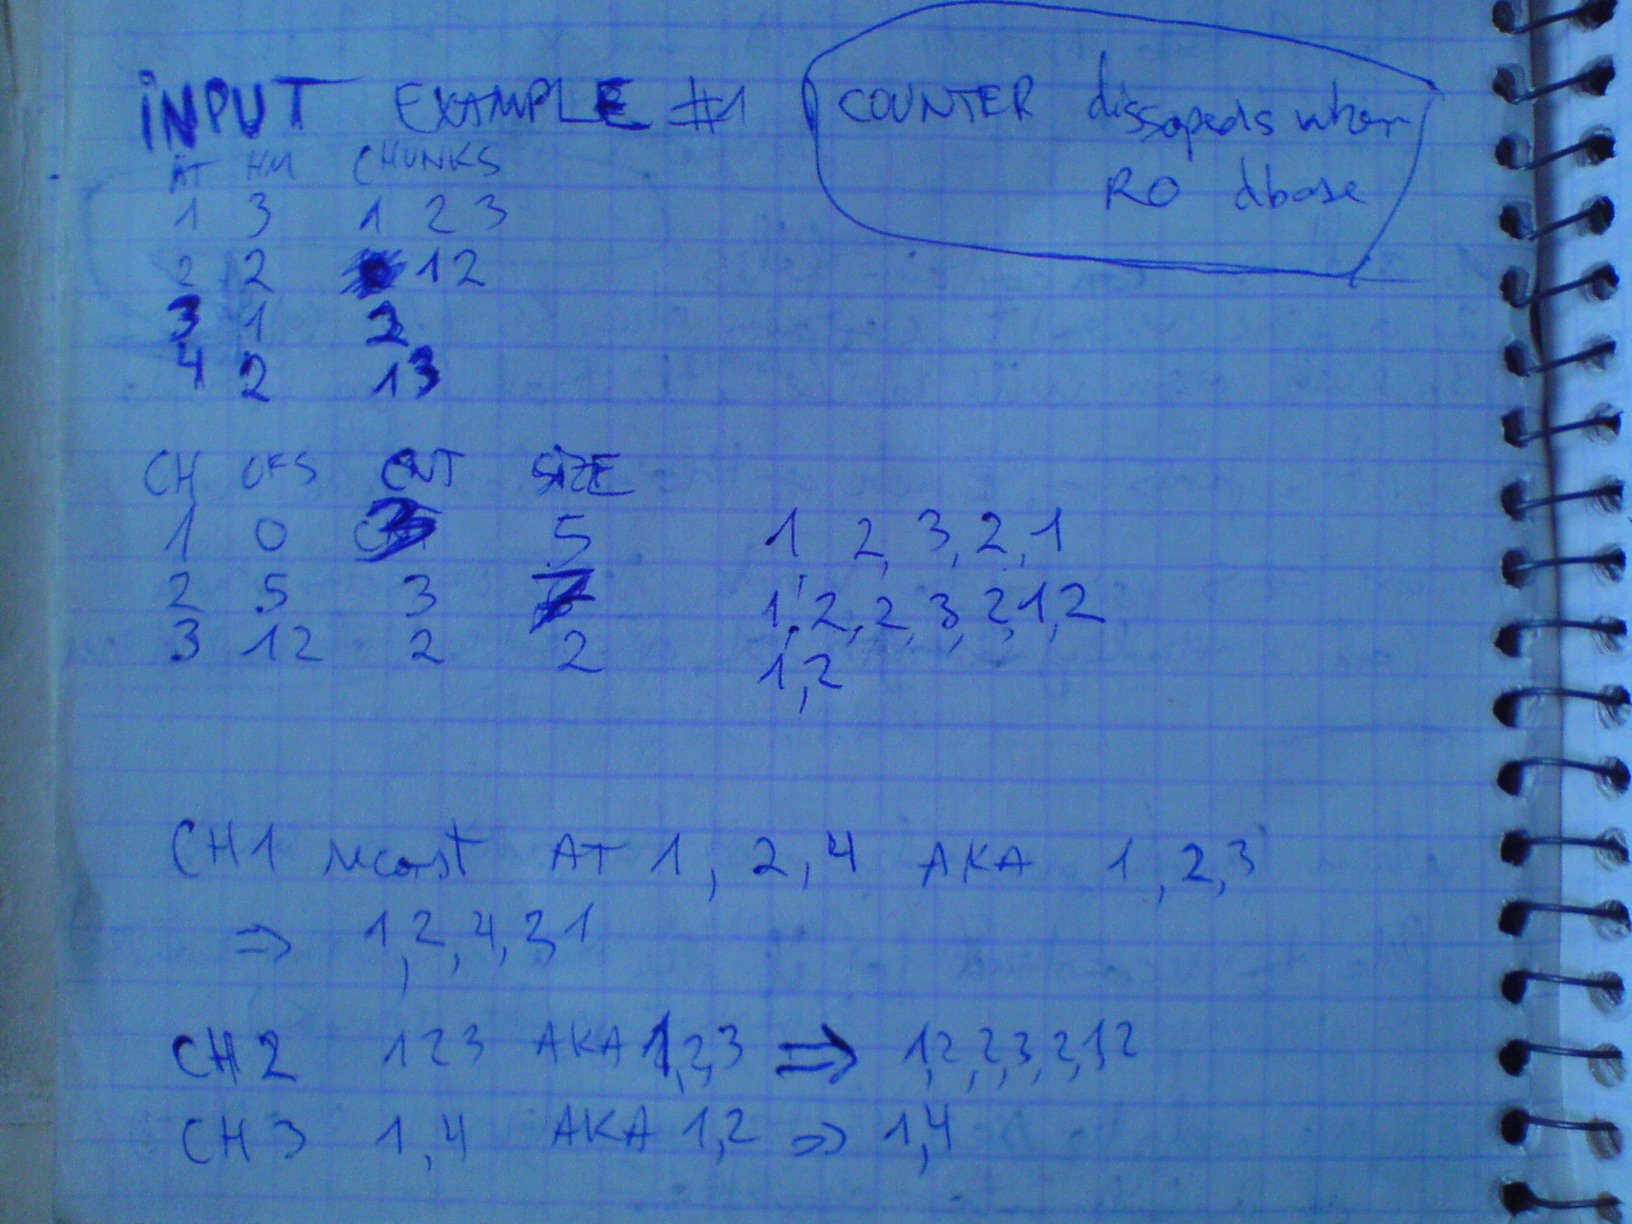 INPUT EXAMPLE #1
COUNTER dissapeds when
RO dbase
AT HM CHUNKS
1 3 1 2 3
2 2 1 2
3 1 2
4 2 1 3
CH OFS CNT SIZE
1 0 3 5 1 2, 3, 2, 1
2 5 3 7 1, 2, 2, 3, 2, 1, 2
3 12 2 2 1, 2
CH1 AT 1, 2, 4 AKA 1, 2, 3
⇒ 1, 2, 4, 2, 1
CH2 1 2 3 AKA 1, 2, 3 ⇒ 1, 2, 2, 3, 2, 1, 2
CH3 1, 4 AKA 1, 2 ⇒ 1, 4